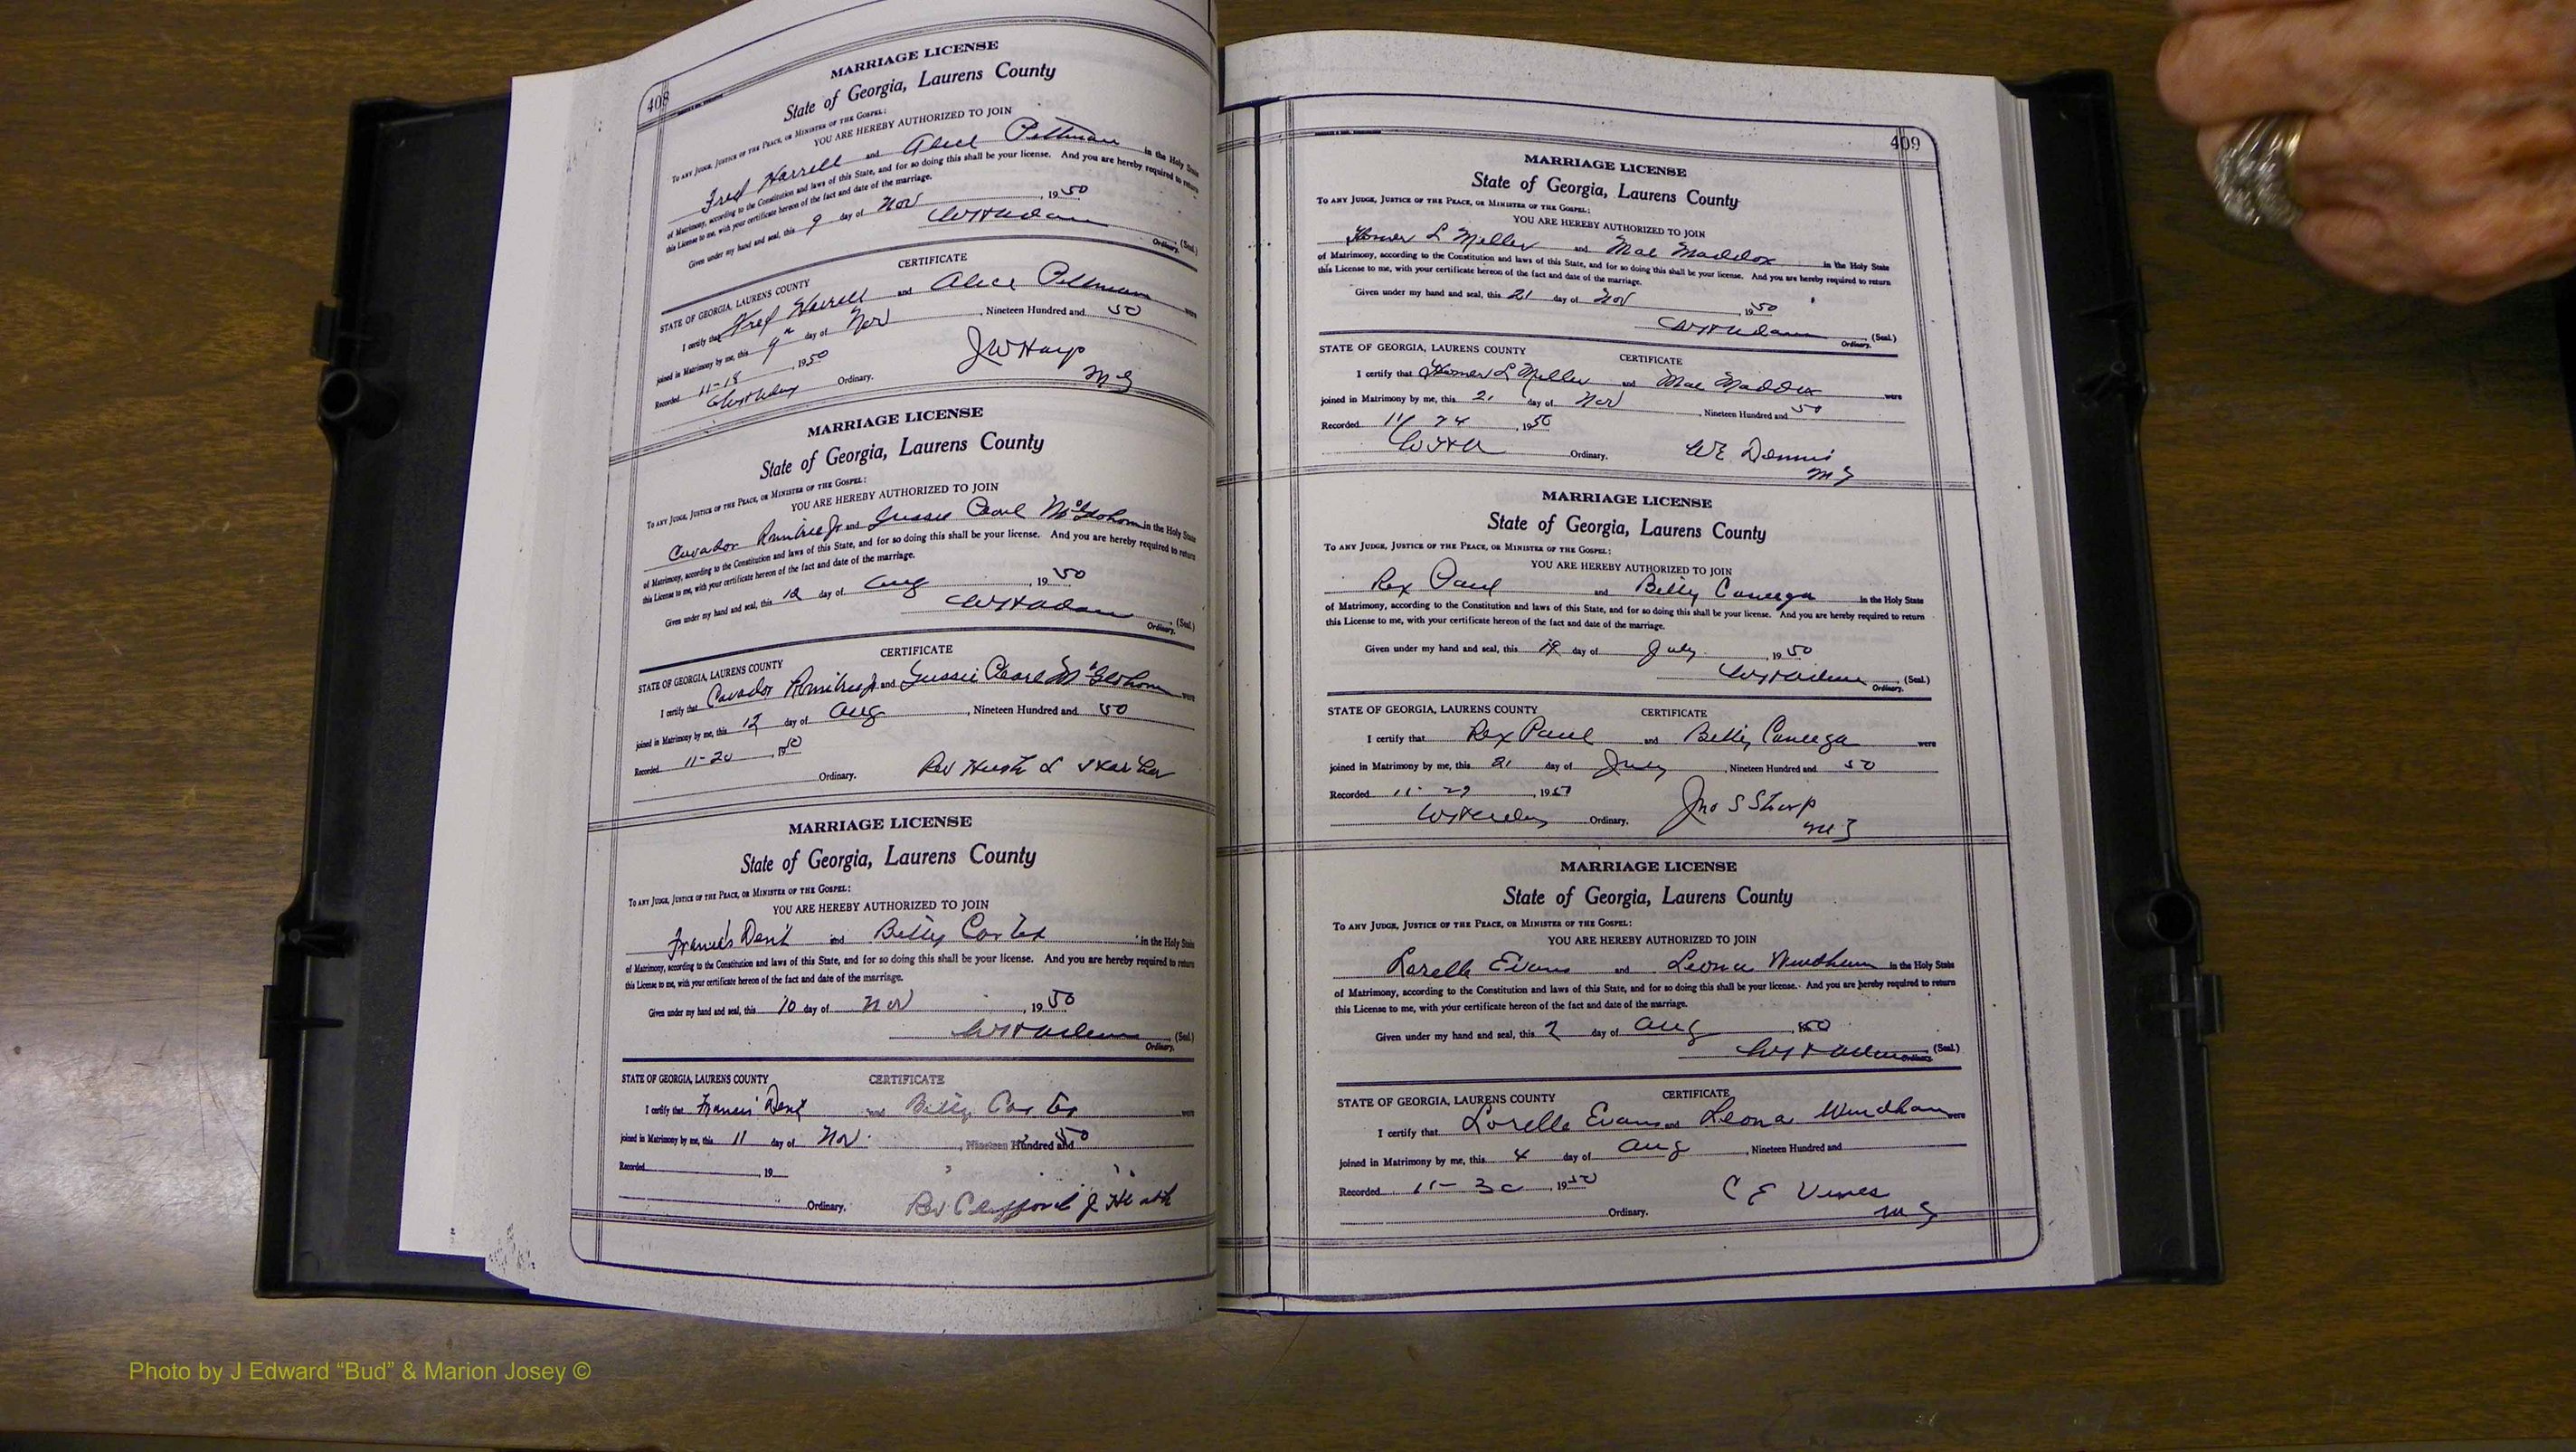 408
MARRIAGE LICENSE
State of Georgia, Laurens County
TO ANY JUDGE, JUSTICE OF THE PEACE, OR MINISTER OF THE GOSPEL:
YOU ARE HEREBY AUTHORIZED TO JOIN
Fred Harrell and Alice Pittman in the Holy State
of Matrimony, according to the Constitution and laws of this State, and for so doing this shall be your license. And you are hereby required to return
this License to me, with your certificate hereon of the fact and date of the marriage.
Given under my hand and seal, this 9 day of Nov, 1950
(Seal.)
Ordinary.
CERTIFICATE
STATE OF GEORGIA, LAURENS COUNTY
I certify that Fred Harrell and Alice Pittman were
joined in Matrimony by me, this 9 day of Nov, Nineteen Hundred and 50
Recorded 11-18, 1950
Ordinary.
M G
MARRIAGE LICENSE
State of Georgia, Laurens County
TO ANY JUDGE, JUSTICE OF THE PEACE, OR MINISTER OF THE GOSPEL:
YOU ARE HEREBY AUTHORIZED TO JOIN
Jr and Pearl in the Holy State
of Matrimony, according to the Constitution and laws of this State, and for so doing this shall be your license. And you are hereby required to return
this License to me, with your certificate hereon of the fact and date of the marriage.
Given under my hand and seal, this 12 day of Aug, 1950
(Seal.)
Ordinary.
CERTIFICATE
STATE OF GEORGIA, LAURENS COUNTY
I certify that and Pearl were
joined in Matrimony by me, this 12 day of Aug, Nineteen Hundred and 50
Recorded 11-20, 1950
Ordinary. Rev
MARRIAGE LICENSE
State of Georgia, Laurens County
TO ANY JUDGE, JUSTICE OF THE PEACE, OR MINISTER OF THE GOSPEL:
YOU ARE HEREBY AUTHORIZED TO JOIN
Francis Dent and Betty Carter in the Holy State
of Matrimony, according to the Constitution and laws of this State, and for so doing this shall be your license. And you are hereby required to return
this License to me, with your certificate hereon of the fact and date of the marriage.
Given under my hand and seal, this 10 day of Nov, 1950
(Seal.)
Ordinary.
STATE OF GEORGIA, LAURENS COUNTY CERTIFICATE
I certify that Francis Dent and Betty Carter were
joined in Matrimony by me, this 11 day of Nov., Nineteen Hundred and 50
Recorded , 19
Ordinary. Rev J Heath
409
MARRIAGE LICENSE
State of Georgia, Laurens County
TO ANY JUDGE, JUSTICE OF THE PEACE, OR MINISTER OF THE GOSPEL:
YOU ARE HEREBY AUTHORIZED TO JOIN
Homer L Miller and Mae Maddox in the Holy State
of Matrimony, according to the Constitution and laws of this State, and for so doing this shall be your license. And you are hereby required to return
this License to me, with your certificate hereon of the fact and date of the marriage.
Given under my hand and seal, this 21 day of Nov, 1950
(Seal.)
Ordinary.
STATE OF GEORGIA, LAURENS COUNTY CERTIFICATE
I certify that Homer L Miller and Mae Maddox were
joined in Matrimony by me, this 21 day of Nov, Nineteen Hundred and 50
Recorded 11 24, 1950
Ordinary. WE Dennis
M G
MARRIAGE LICENSE
State of Georgia, Laurens County
TO ANY JUDGE, JUSTICE OF THE PEACE, OR MINISTER OF THE GOSPEL:
YOU ARE HEREBY AUTHORIZED TO JOIN
Rex Paul and Betty in the Holy State
of Matrimony, according to the Constitution and laws of this State, and for so doing this shall be your license. And you are hereby required to return
this License to me, with your certificate hereon of the fact and date of the marriage.
Given under my hand and seal, this 19 day of July, 1950
(Seal.)
Ordinary.
STATE OF GEORGIA, LAURENS COUNTY CERTIFICATE
I certify that Rex Paul and Betty were
joined in Matrimony by me, this 21 day of July, Nineteen Hundred and 50
Recorded 11-29, 1950
Ordinary. Jno S Sharp
M G
MARRIAGE LICENSE
State of Georgia, Laurens County
TO ANY JUDGE, JUSTICE OF THE PEACE, OR MINISTER OF THE GOSPEL:
YOU ARE HEREBY AUTHORIZED TO JOIN
Lorelle Evans and Leona Windham in the Holy State
of Matrimony, according to the Constitution and laws of this State, and for so doing this shall be your license. And you are hereby required to return
this License to me, with your certificate hereon of the fact and date of the marriage.
Given under my hand and seal, this 2 day of Aug, 1950
(Seal.)
Ordinary.
STATE OF GEORGIA, LAURENS COUNTY CERTIFICATE
I certify that Lorelle Evans and Leona Windham were
joined in Matrimony by me, this 4 day of Aug, Nineteen Hundred and
Recorded 11-30, 1950
C E Vines
Ordinary. M G
Photo by J Edward “Bud” & Marion Josey ©